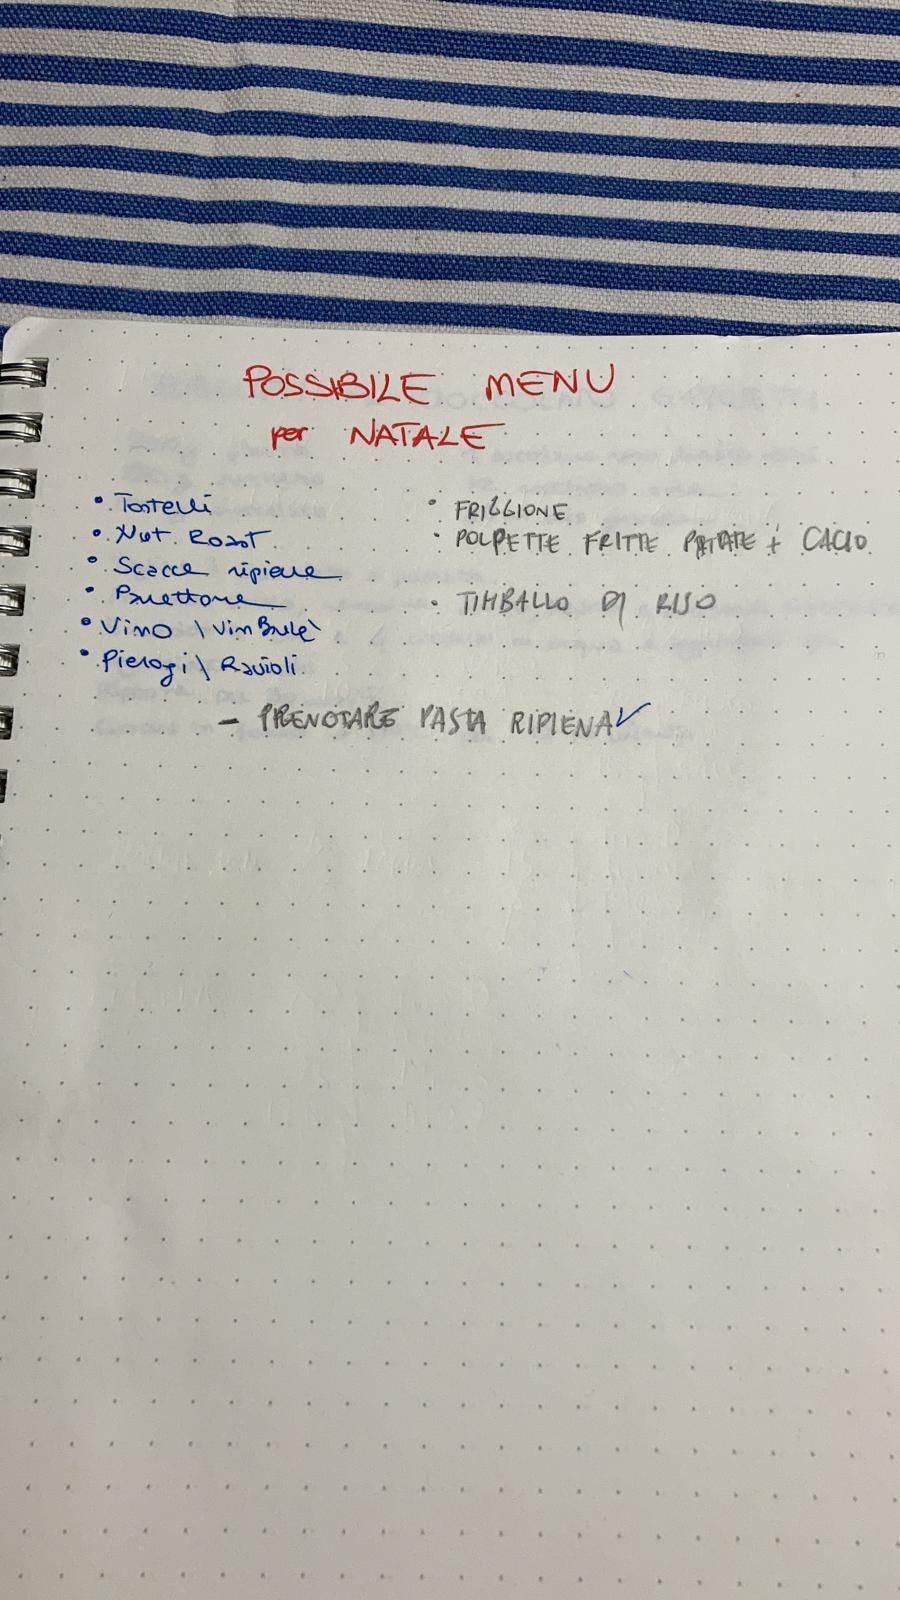 POSSIBILE MENU
per NATALE
• Tortelli
• Nut Roast
• Scacce ripiene
• Panettone
• Vino \ Vin Brulè
• Pierogi \ Ravioli
• FRIGGIONE
• POLPETTE FRITTE PATATE + CACIO
• TIMBALLO DI RISO
– PRENOTARE PASTA RIPIENA ✓